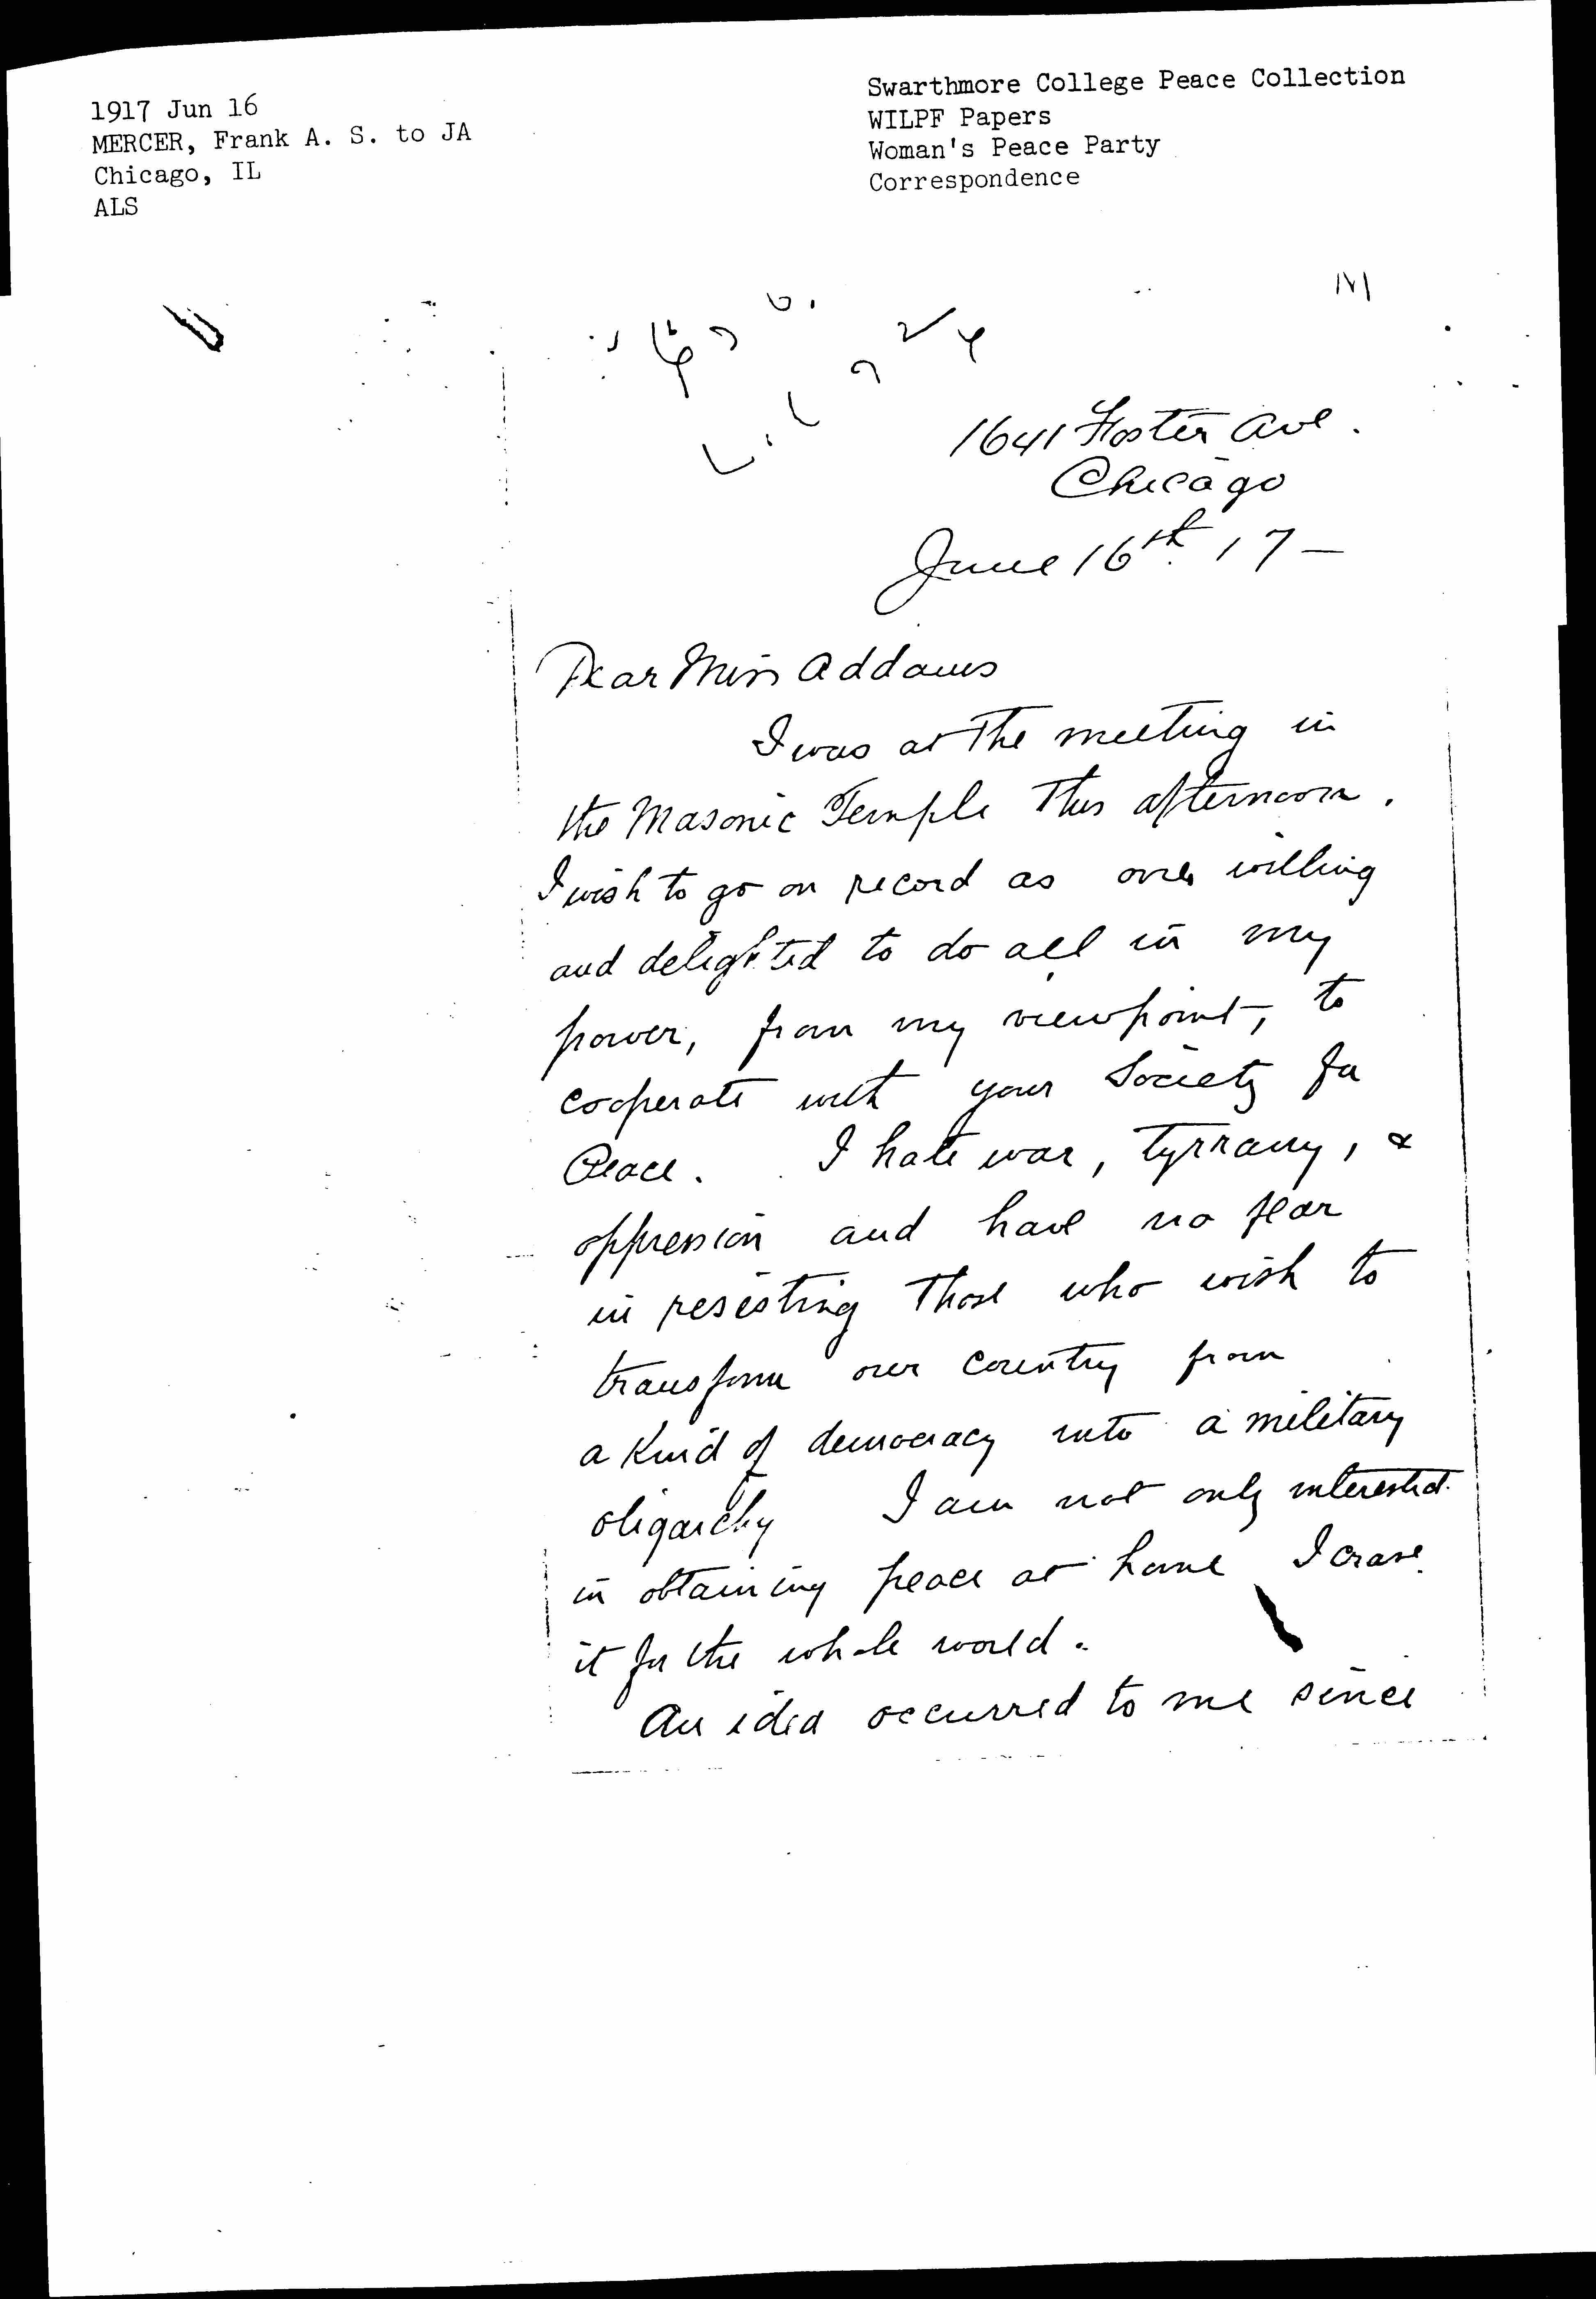 1917 Jun 16
MERCER, Frank A. S. to JA
Chicago, IL
ALS
Swarthmore College Peace Collection
WILPF Papers
Woman's Peace Party
Correspondence
1641 Foster Ave.
Chicago
June 16th. 17 —
Dear Miss Addams
I was at the meeting in
the Masonic Temple this afternoon.
I wish to go on record as one willing
and delighted to do all in my
power, from my viewpoint, to
cooperate with your Society for
Peace. I hate war, tyrrany, &
oppression and have no fear
in resisting those who wish to
transform our country from
a kind of democracy into a military
oligarchy I am not only interested
in obtaining peace at home I crave
it for the whole world.
An idea occurred to me since